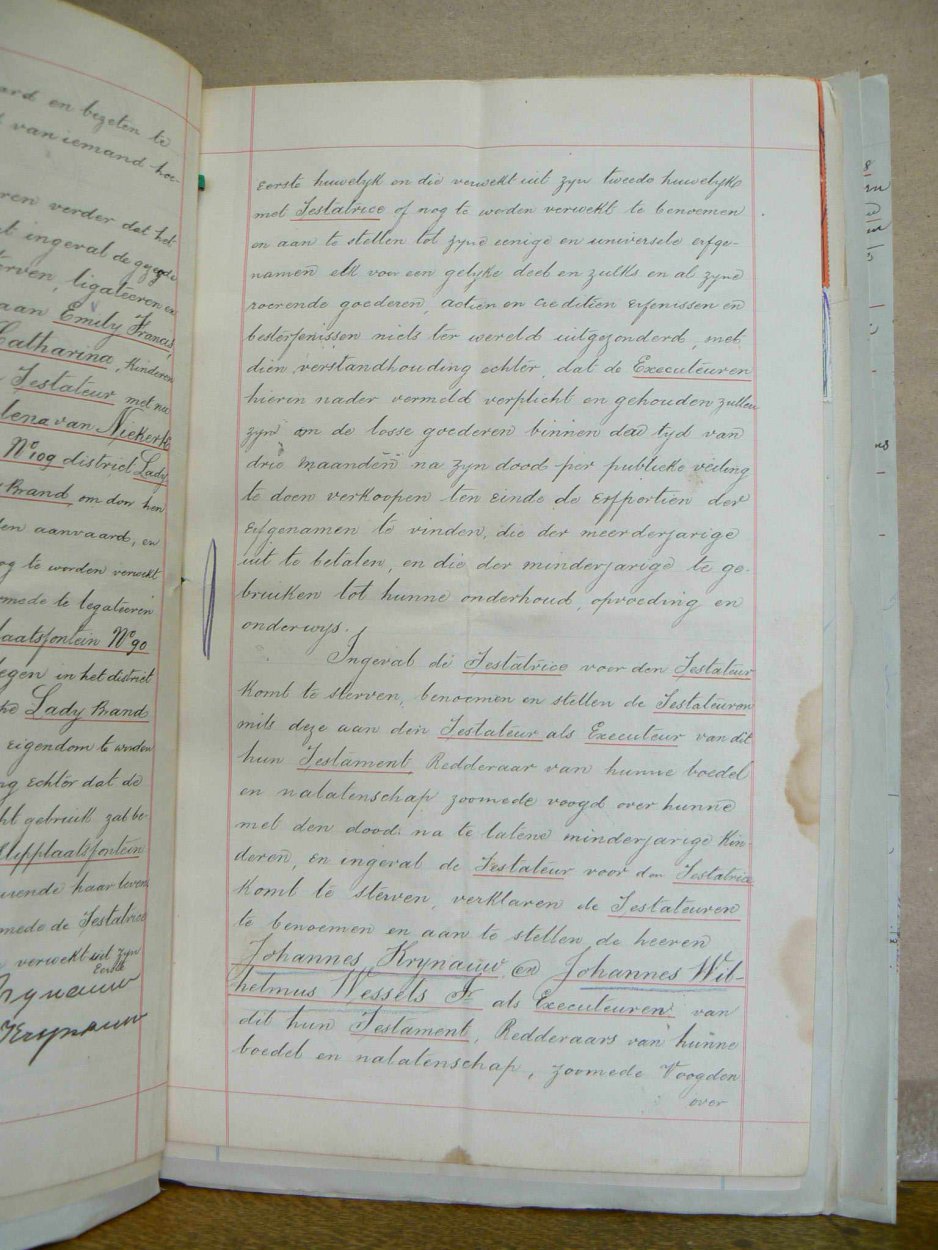 aard en bezeten te
van iemand hee-
ren verder dat het
ingeval de gezegde
erven, ligateeren en
aan Emily Francis,
Catharina, Kinderen
Testateur met nu
lena van Niekerk
No 109 district Lady
Brand, om door hen
den aanvaard, en
og te worden verwekt
mede te legateeren
laatsfontein No 90
egen in het district
Lady Brand
eigendom te worden
ng echter dat de
ht gebruik zal be-
Klipplaatsfontein
urende haar leven
mede de Testatrice
verwekt uit zyn
Eerste
Krynauw
Krynauw
Eerste huwelyk en die verwekt uit zyn tweede huwelyk
met Testatrice of nog te worden verwekt te benoemen
en aan te stellen tot zyne eenige en universele erfge-
namen elk voor een gelyke deel en zulks en al zyne
roerende goederen, actien en creditien erfenissen en
besterfenissen niets ter wereld uitgezonderd, met
dien verstandhouding echter, dat de Executeuren
hierin nader vermeld verplicht en gehouden zullen
zyn om de losse goederen binnen den tyd van
drie maanden na zyn dood per publieke veiling
te doen verkoopen ten einde de Erfportien der
Erfgenamen te vinden, die der meerderjarige
uit te betalen, en die der minderjarige te ge-
bruiken tot hunne onderhoud, opvoeding en
onderwys.
Ingeval de Testatrice voor den Testateur
Komt te sterven, benoemen en stellen de Testateuren
mits deze aan den Testateur als Executeur van dit
hun Testament Redderaar van hunne boedel
en nalatenschap zoomede voogd over hunne
met den dood na te latene minderjarige Kin-
deren, en ingeval de Testateur voor den Testatrice
Komt te sterven, verklaren de Testateuren
te benoemen en aan te stellen de heeren
Johannes Krynauw, en Johannes Wil-
helmus Wessels Jr als Executeuren van
dit hun Testament, Redderaars van hunne
boedel en nalatenschap, zoomede Voogden
over